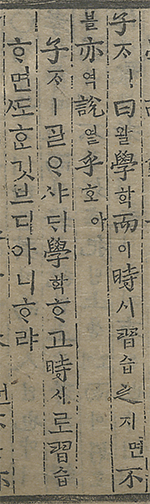 子ᄌᆞㅣ曰왈學학而이時시習습之지면不
블亦역說열乎호아
子ᄌᆞㅣᄀᆞᆯᄋᆞ샤ᄃᆡ學학ᄒᆞ고時시로習습
ᄒᆞ면ᄯᅩᄒᆞᆫ깃브디아니ᄒᆞ랴